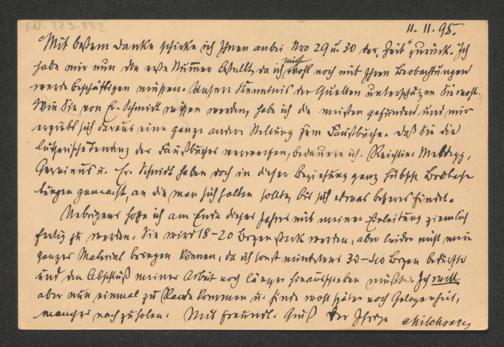 I.N. 223.832
11.11.95.
Mit bestem Danke schicke ich Ihnen anbei Nro 29 u. 30 der „Zeit“ zurück. Ich
habe mir nun die erste Nummer bestellt, da ich mich wohl noch mit Ihren Beobachtungen
werde beschäftigen müssen. Unsere Kenntnis der Quellen unterschätzen Sie wohl.
Wie Sie von E. Schmidt wissen werden, habe ich die meisten gefunden und mir
ergibt sich daraus eine ganz andere Stellung zum Faustbuche. Daß Sie die
lutherische Tendenz des Faustbuches verwerfen, bedaure ich. Reichlin-Meldegg,
Gervinus u. Er. Schmidt haben doch in dieser Beziehung ganz hübsche Beobach-
tungen gemacht, an die man sich halten sollte, bis sich etwas besseres findet.
Uebrigens hoffe ich am Ende dieses Jahres mit meiner Einleitung ziemlich
fertig zu werden. Sie wird 18-20 Bogen stark werden, aber leider nicht mein
ganzes Material bringen können, da ich sonst mindestens 30-40 Bogen brauchte
und den Abschluß meiner Arbeit noch länger hinausschieben müßte. Ich will
aber nun einmal zu Rande kommen u. finde wohl später noch Gelegenheit,
manches nachzuholen. Mit freundl. Gruß Ihr Milchsack